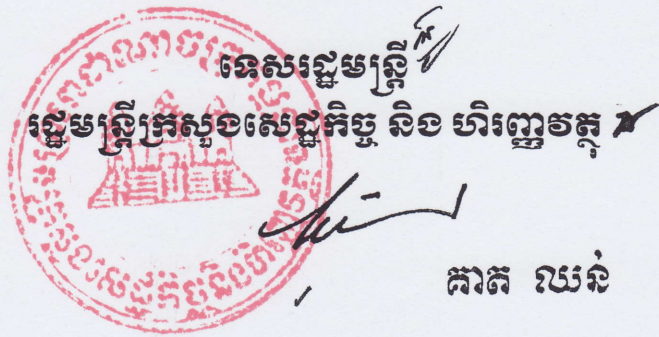 ទេសរដ្ឋមន្ត្រី
រដ្ឋមន្ត្រីក្រសួងសេដ្ឋកិច្ច និង ហិរញ្ញវត្ថុ
គាត ឈន់